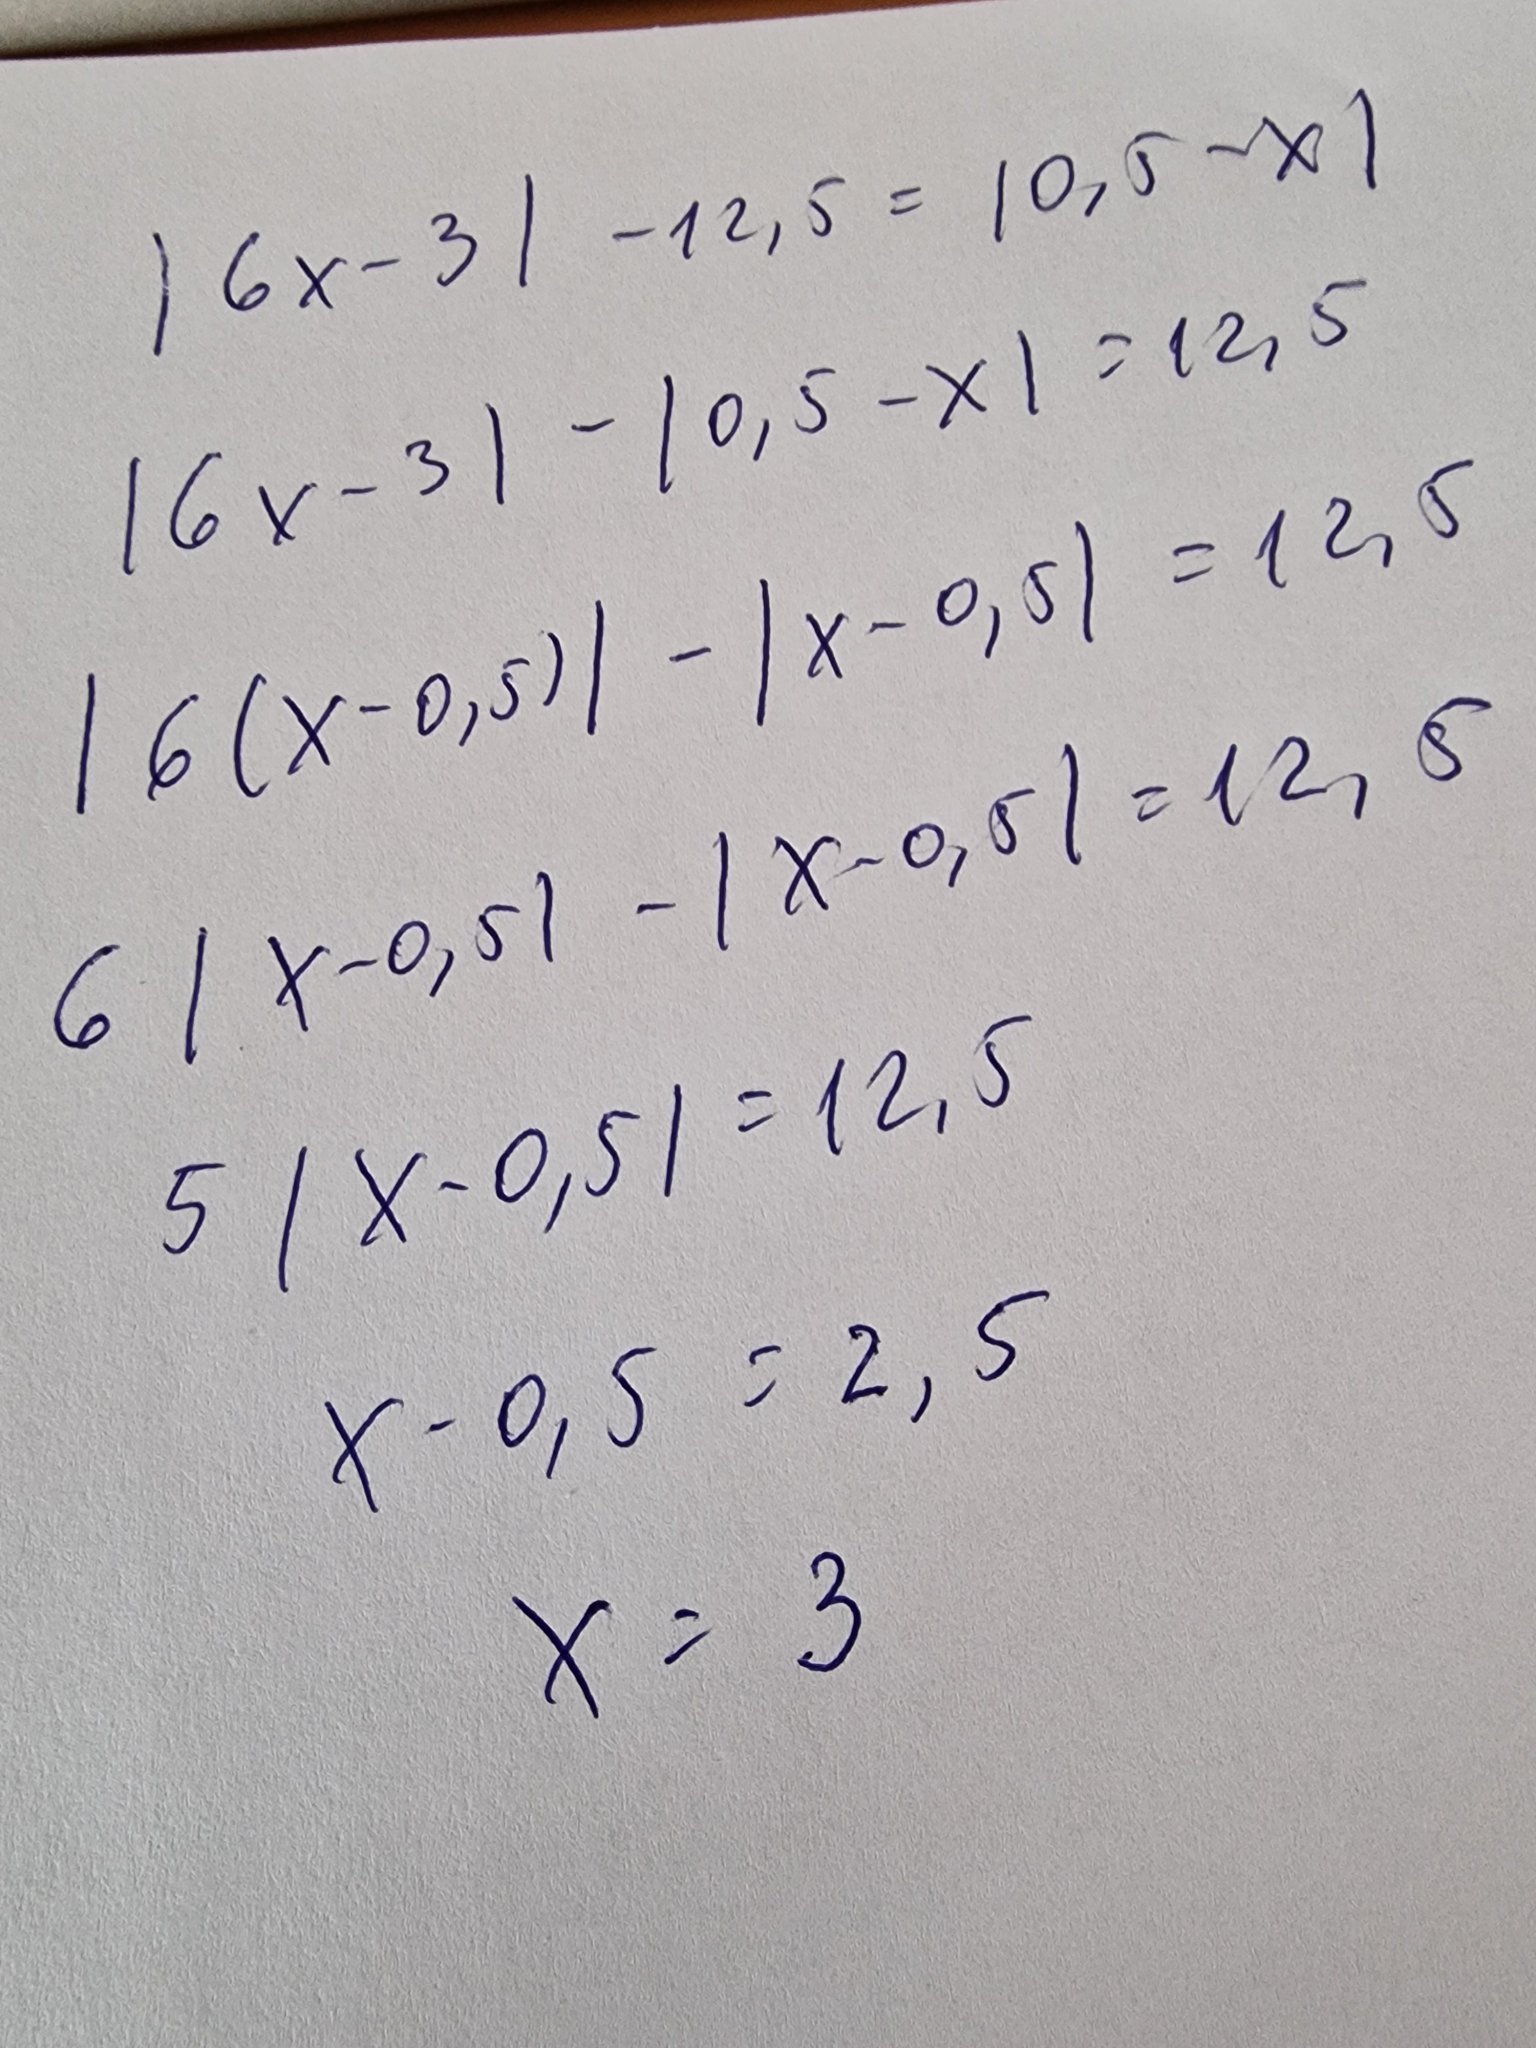 |6x-3| -12,5 = |0,5-x|
|6x-3| - |0,5-x| = 12,5
|6(x-0,5)| - |x-0,5| = 12,5
6|x-0,5| - |x-0,5| = 12,5
5|x-0,5| = 12,5
x-0,5 = 2,5
x = 3